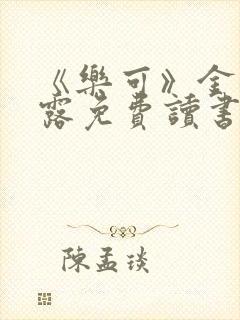 《樂可》金
露免費讀書
陳孟琰